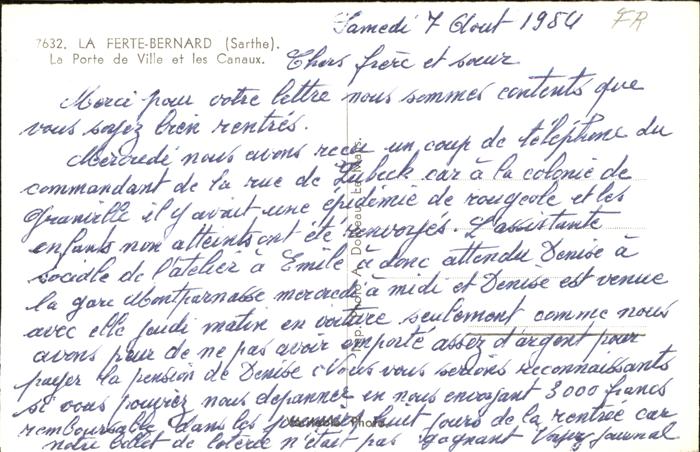 Samedi 7 Aout 1954
FR
7632. LA FERTE-BERNARD (Sarthe).
La Porte de Ville et les Canaux.
Chers frère et sœur
Merci pour votre lettre nous sommes contents que
vous soyez bien rentrés.
Mercredi nous avons reçu un coup de téléphone du
commandant de la rue de Lubeck car à la colonie de
Granville il y avait une épidémie de rougeole et les
enfants non atteints ont été renvoyés. L'assistante
sociale de l'atelier à Emile à donc attendu Denise à
la gare Montparnasse mercredi à midi et Denise est venue
avec elle jeudi matin en voiture seulement comme nous
avons peur de ne pas avoir emporté assez d'argent pour
payer la pension de Denise Nous vous serions reconnaissants
si vous pouviez nous dépanner en nous envoyant 3000 francs
remboursable dans les huit jours de la rentrée car
notre billet de loterie n'était pas gagnant journal
A. Dolbeau, Le Mans.
Photo